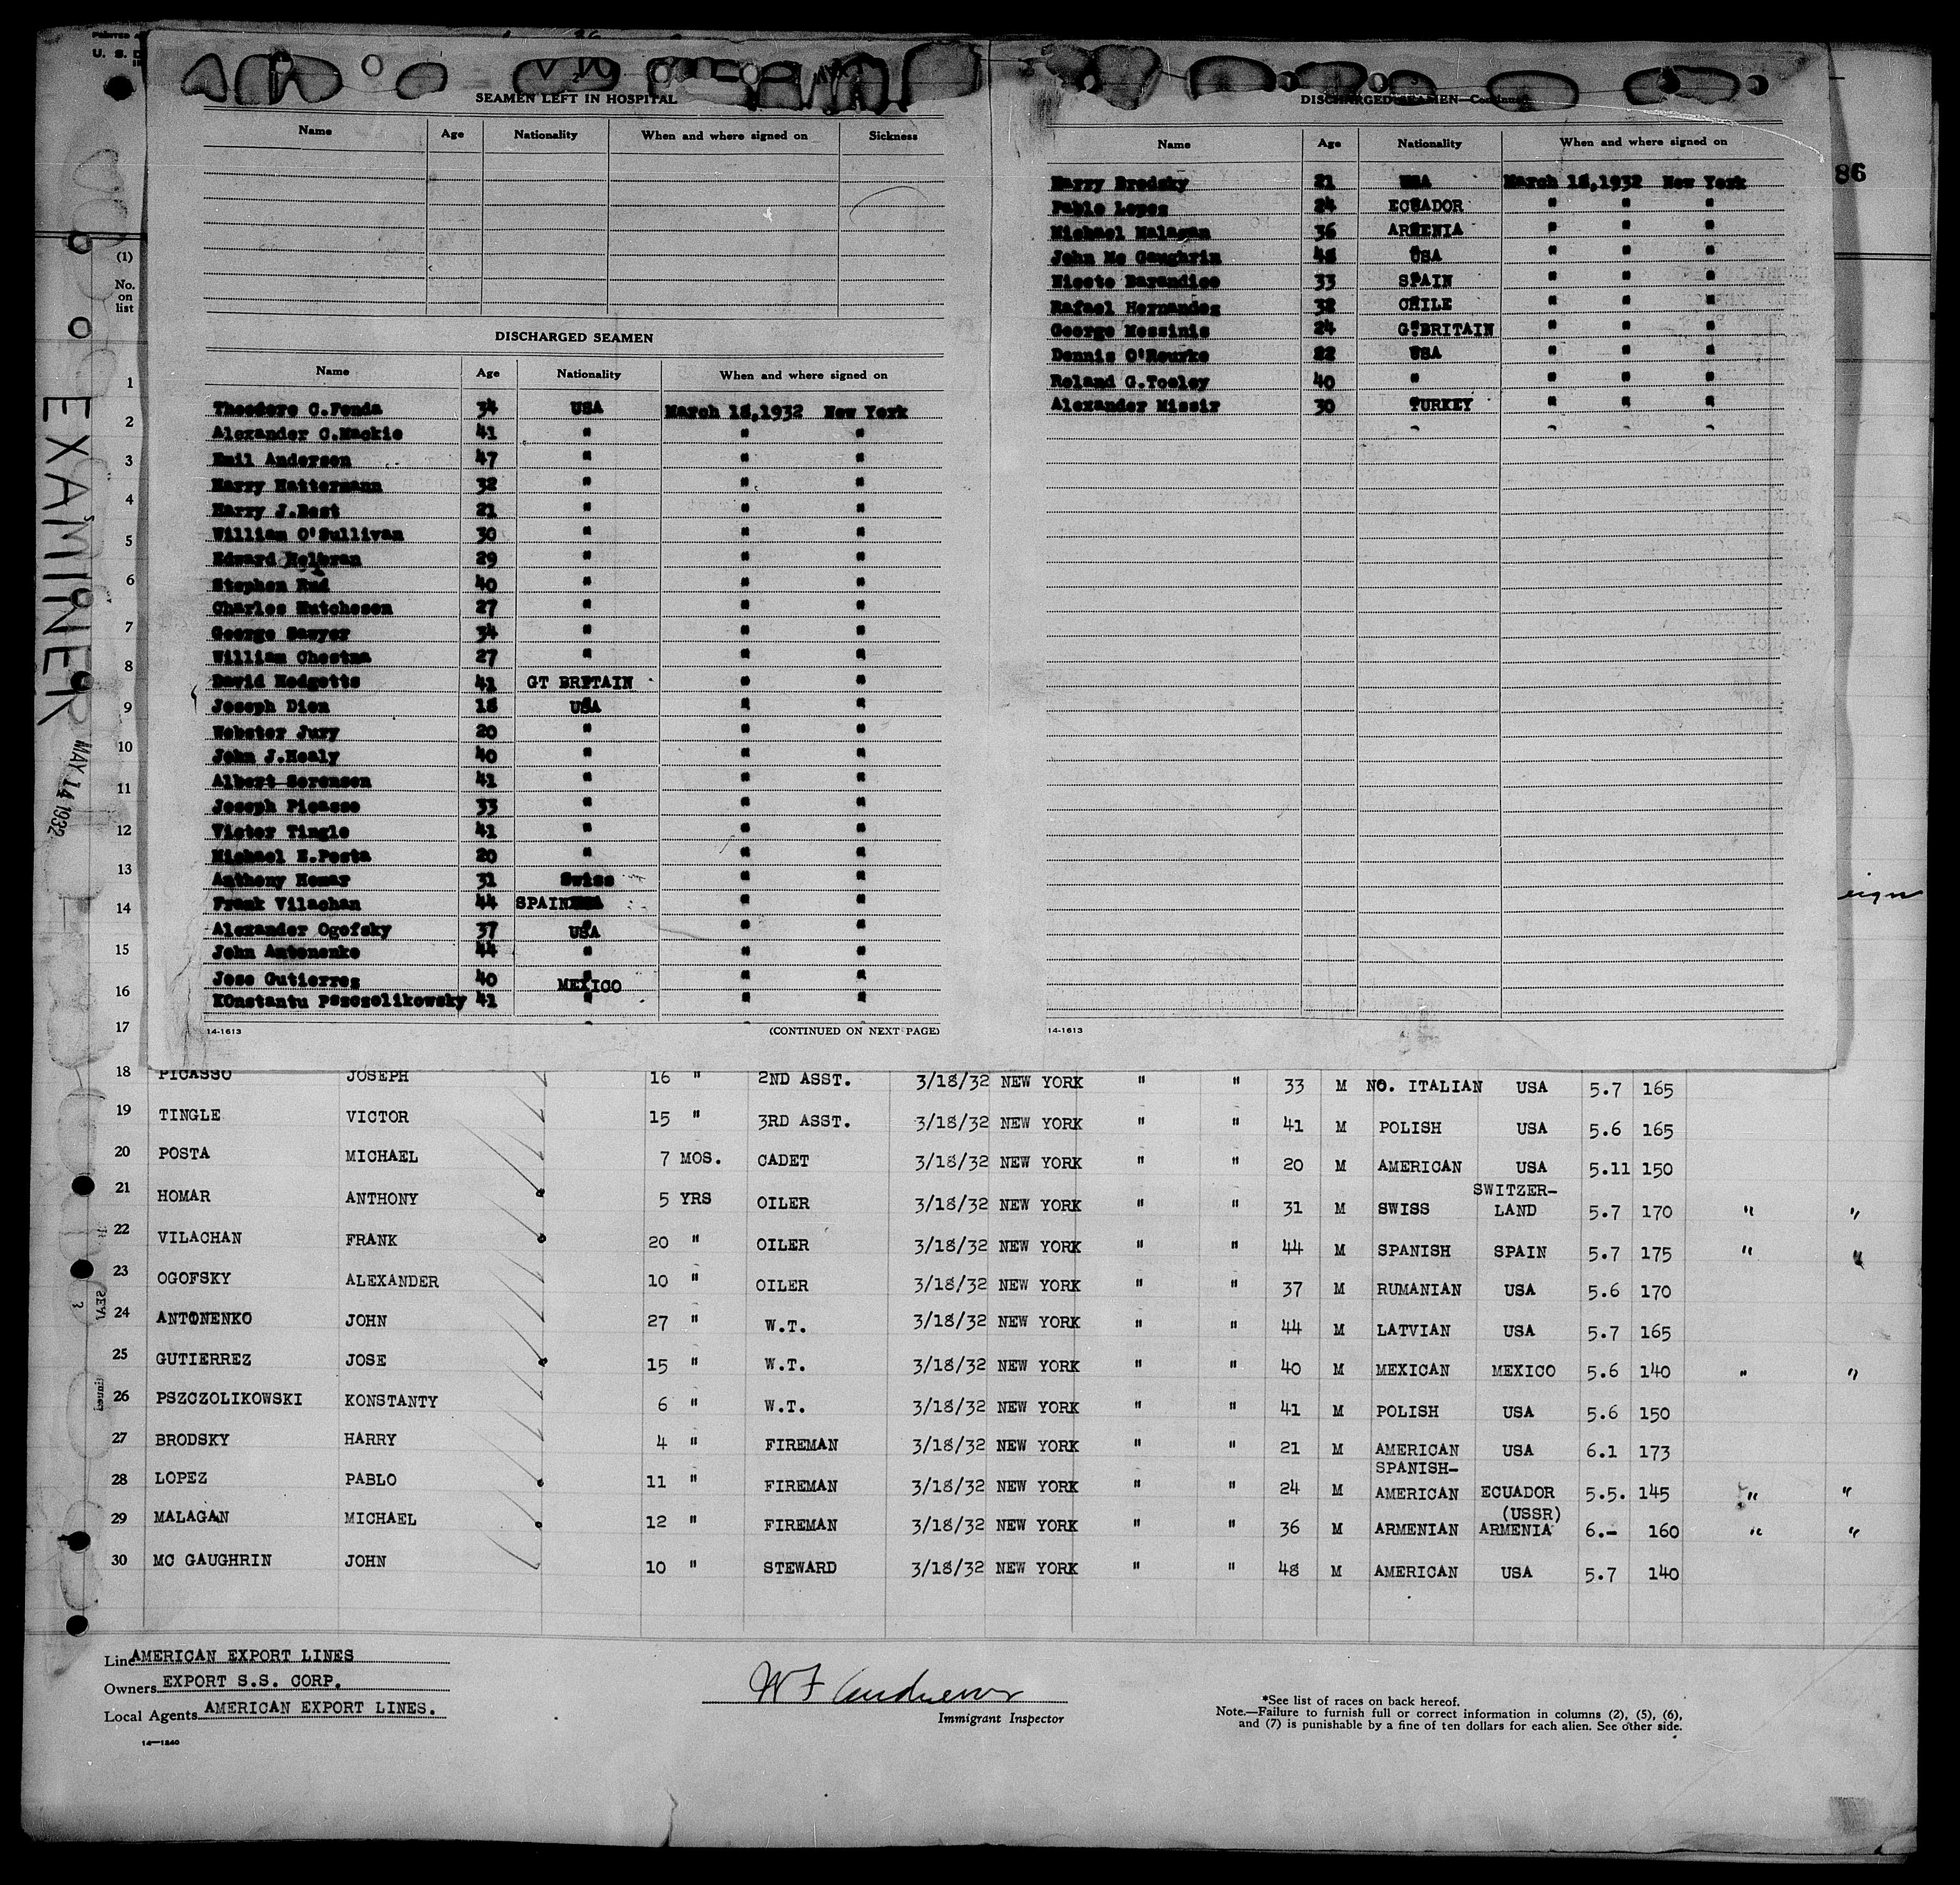 PRINTED
U. S. D
86
(1)
No.
on
list
EXAMINER
MAY 14 1932
SEAMEN LEFT IN HOSPITAL
Name Age Nationality When and where signed on Sickness
DISCHARGED SEAMEN
Name Age Nationality When and where signed on
Theodore C.Fonda 34 USA March 18,1932 New York
Alexander C.Mackie 41 " " "
Emil Anderson 47 " " "
Harry Hattermann 32 " " "
Harry J.Best 21 " " "
William O'Sullivan 30 " " "
Edward 29 " " "
Stephen Rud 40 " " "
Charles Hutcheson 27 " " "
George Sawyer 34 " " "
William Chestna 27 " " "
David Hodgetts 41 GT BRITAIN " "
Joseph Dien 18 USA " "
Webster Jury 20 " " "
John J.Healy 40 " " "
Albert Sorensen 41 " " "
Joseph Picasso 33 " " "
Victor Tingle 41 " " "
Michael E.Posta 20 " " "
Anthony Homar 31 Swiss " "
Frank Vilachan 44 SPAIN " "
Alexander Ogofsky 37 USA " "
John Antonenko 44 " " "
Jose Gutierrez 40 MEXICO " "
KOnstantu Pszczolikowsky 41 " " "
14-1613 (CONTINUED ON NEXT PAGE)
DISCHARGED SEAMEN—Continued
Name Age Nationality When and where signed on
Harry Brodsky 21 USA March 18,1932 New York
Pablo Lopez 24 ECUADOR " " "
Michael Malagan 36 ARMENIA " " "
John Mc Gaughrin 48 USA " " "
Niceto Barandico 33 SPAIN " " "
Rafael Hernandez 38 CHILE " " "
George Messinis 24 G.BRITAIN " " "
Dennis O'Rourke 22 USA " " "
Roland G.Tooley 40 " " " "
Alexander Missir 30 TURKEY " " "
14-1613
eign
1
2
3
4
5
6
7
8
9
10
11
12
13
14
15
16
17
18 PICASSO JOSEPH 16 " 2ND ASST. 3/18/32 NEW YORK " " 33 M NO. ITALIAN USA 5.7 165
19 TINGLE VICTOR 15 " 3RD ASST. 3/18/32 NEW YORK " " 41 M POLISH USA 5.6 165
20 POSTA MICHAEL 7 MOS. CADET 3/18/32 NEW YORK " " 20 M AMERICAN USA 5.11 150
21 HOMAR ANTHONY 5 YRS OILER 3/18/32 NEW YORK " " 31 M SWISS SWITZER-LAND 5.7 170 " "
22 VILACHAN FRANK 20 " OILER 3/18/32 NEW YORK " " 44 M SPANISH SPAIN 5.7 175 " "
23 OGOFSKY ALEXANDER 10 " OILER 3/18/32 NEW YORK " " 37 M RUMANIAN USA 5.6 170
24 ANTONENKO JOHN 27 " W.T. 3/18/32 NEW YORK " " 44 M LATVIAN USA 5.7 165
25 GUTIERREZ JOSE 15 " W.T. 3/18/32 NEW YORK " " 40 M MEXICAN MEXICO 5.6 140 " "
26 PSZCZOLIKOWSKI KONSTANTY 6 " W.T. 3/18/32 NEW YORK " " 41 M POLISH USA 5.6 150
27 BRODSKY HARRY 4 " FIREMAN 3/18/32 NEW YORK " " 21 M AMERICAN USA 6.1 173
28 LOPEZ PABLO 11 " FIREMAN 3/18/32 NEW YORK " " 24 M SPANISH-AMERICAN ECUADOR 5.5. 145 " "
29 MALAGAN MICHAEL 12 " FIREMAN 3/18/32 NEW YORK " " 36 M ARMENIAN (USSR) ARMENIA 6.- 160 " "
30 MC GAUGHRIN JOHN 10 " STEWARD 3/18/32 NEW YORK " " 48 M AMERICAN USA 5.7 140
Line AMERICAN EXPORT LINES
Owners EXPORT S.S. CORP.
Local Agents AMERICAN EXPORT LINES.
14—1240
W F Andrews
Immigrant Inspector
*See list of races on back hereof.
Note.—Failure to furnish full or correct information in columns (2), (5), (6),
and (7) is punishable by a fine of ten dollars for each alien. See other side.